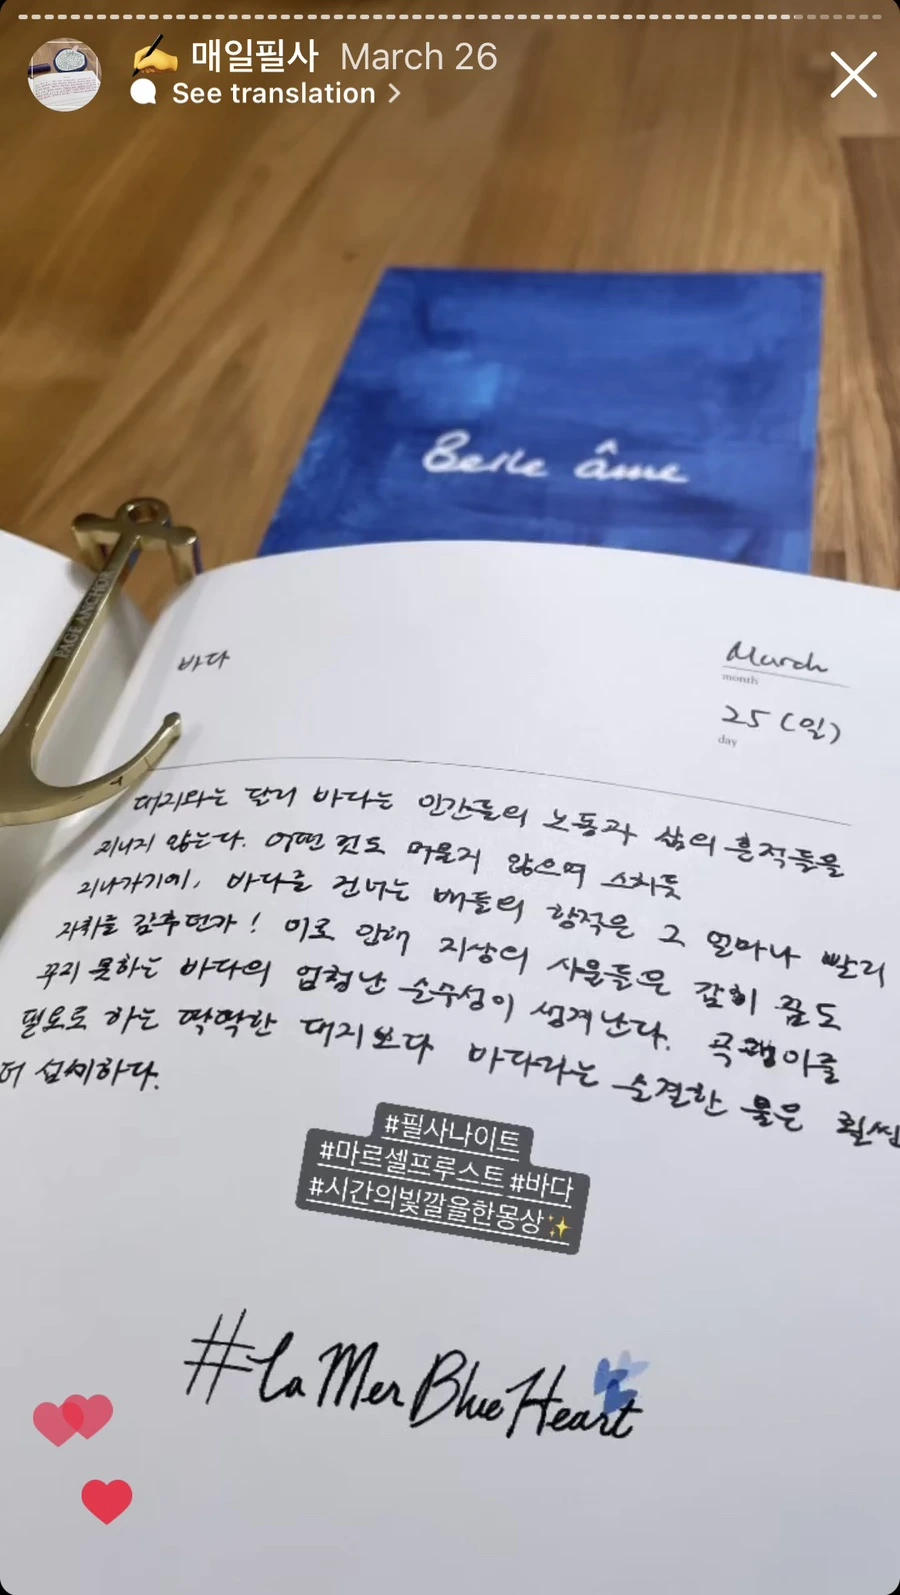 ✍️ 매일필사 March 26
See translation >
Belle âme
PAGE ANCHOR
바다
March
month
25 (일)
day
대지와는 달리 바다는 인간들의 노동과 삶의 흔적들을
지니지 않는다. 어떤 것도 머물지 않으며 스치듯
지나가기에, 바다를 건너는 배들의 항적은 그 얼마나 빨리
자취를 감추던가! 이로 인해 지상의 사물들은 감히 꿈도
꾸지 못하는 바다의 엄청난 순수성이 생겨난다. 곡괭이를
필요로 하는 딱딱한 대지보다 바다라는 순결한 물은 훨씬
더 섬세하다.
#필사나이트
#마르셀프루스트 #바다
#시간의빛깔을한몽상✨
#La Mer Blue Heart